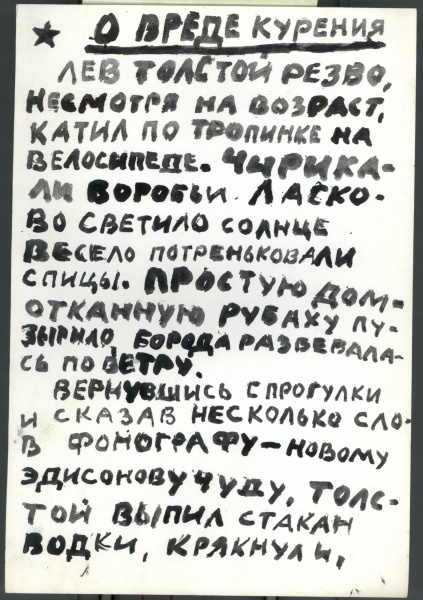 ★ О ВРЕДЕ КУРЕНИЯ
ЛЕВ ТОЛСТОЙ РЕЗВО,
НЕСМОТРЯ НА ВОЗРАСТ,
КАТИЛ ПО ТРОПИНКЕ НА
ВЕЛОСИПЕДЕ. ЧИРИКА-
ЛИ ВОРОБЬИ. ЛАСКО-
ВО СВЕТИЛО СОЛНЦЕ
ВЕСЕЛО ПОТРЕНЬКОВАЛИ
СПИЦЫ. ПРОСТУЮ ДОМ-
ОТКАННУЮ РУБАХУ ПУ-
ЗЫРИЛО БОРОДА РАЗВЕВАЛА-
СЬ ПО ВЕТРУ.
ВЕРНУВШИСЬ С ПРОГУЛКИ
И СКАЗАВ НЕСКОЛЬКО СЛО-
В ФОНОГРАФУ – НОВОМУ
ЭДИСОНОВУ ЧУДУ, ТОЛС-
ТОЙ ВЫПИЛ СТАКАН
ВОДКИ, КРЯКНУЛ И,